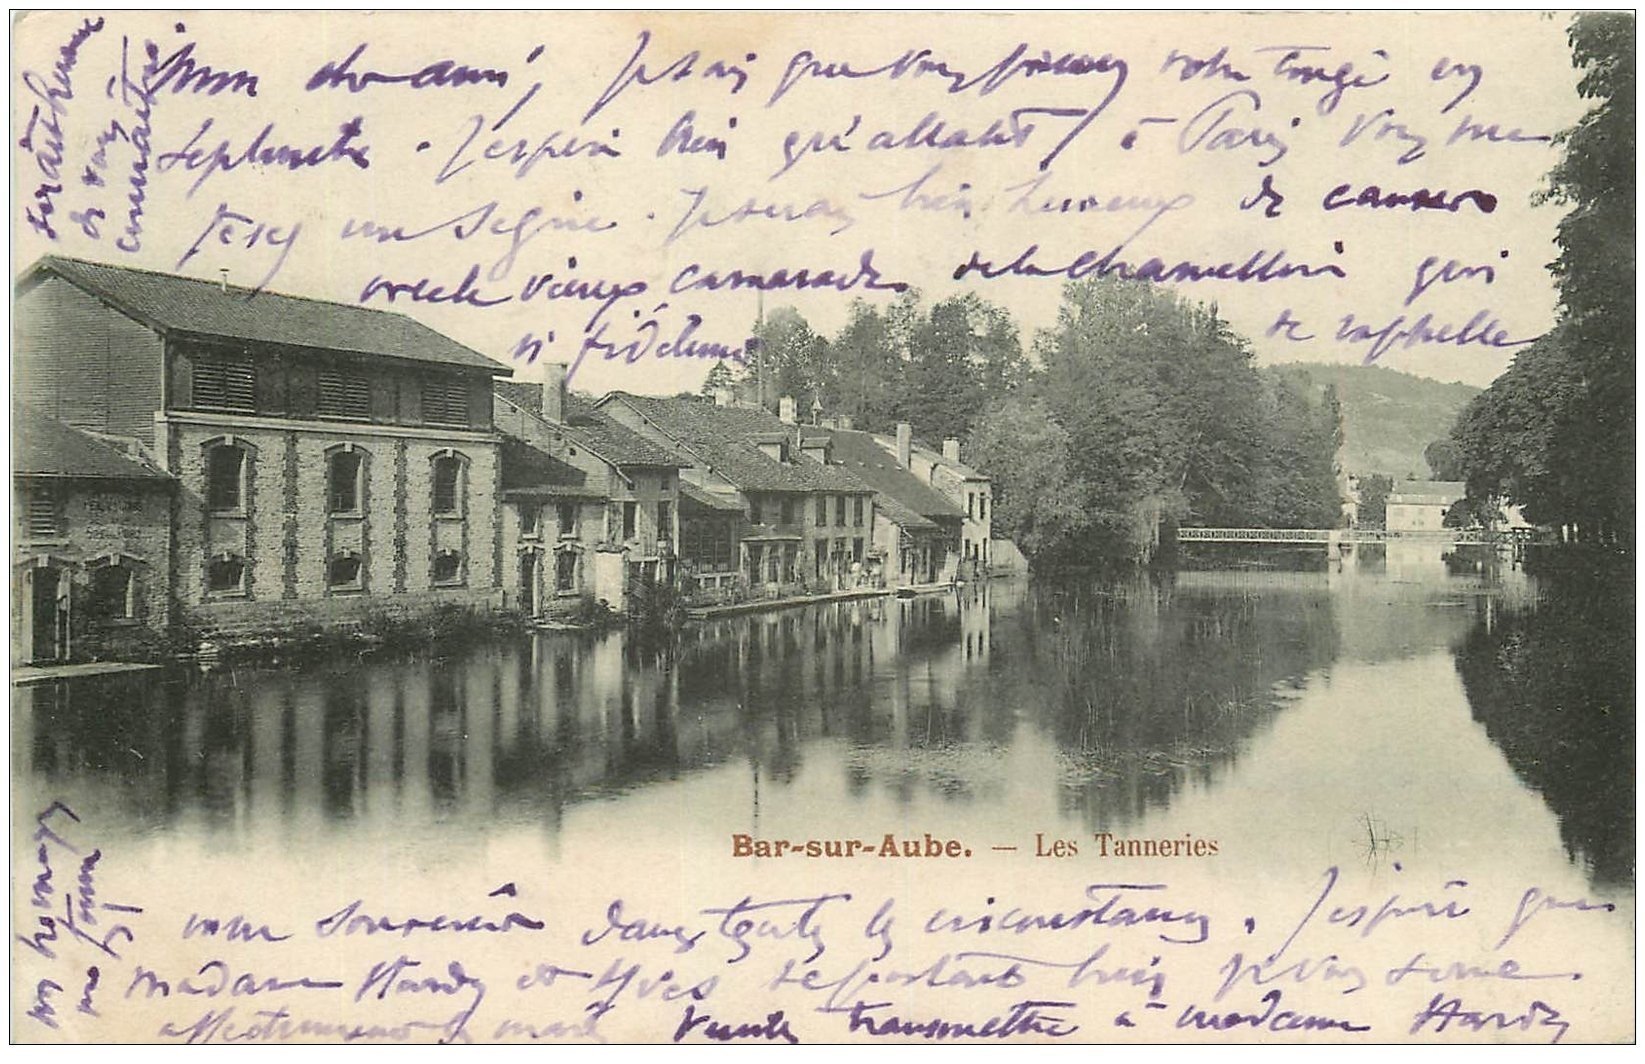 Mon cher ami, Je sais que vous prenez votre congé en
septembre. J'espère bien qu'allant à Paris vous me
ferez un signe. Je serai bien heureux de causer
avec le vieux camarade de la Chamellerie qui
si fidèlement se rappelle
à mon souvenir dans toutes les circonstances. J'espère que
madame Hardy et Yves se portent bien. Je vous serre
affectueusement la main. Veuillez transmettre à madame Hardy
mes hommages
ma femme
sera heureuse
de vous
connaître
Bar-sur-Aube. — Les Tanneries